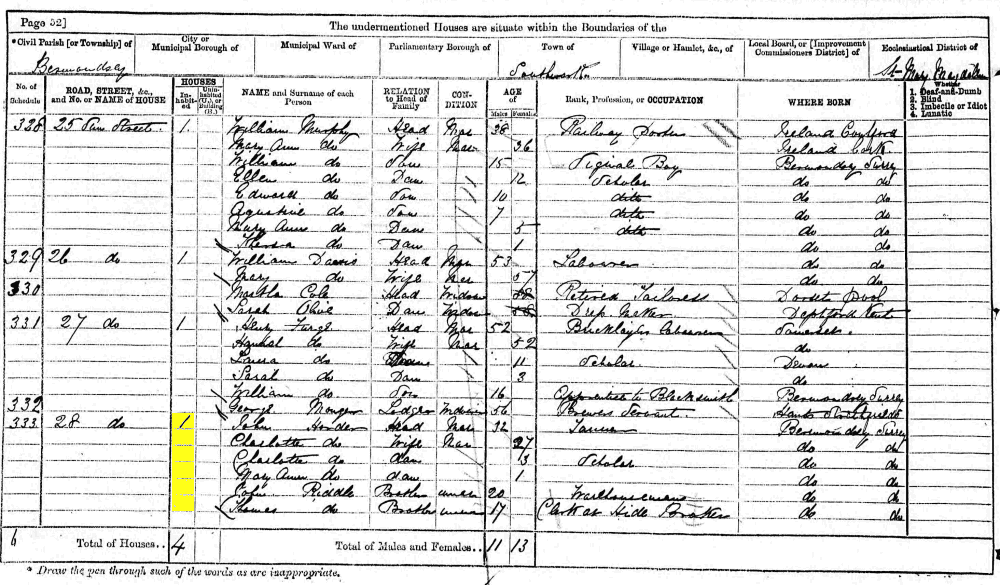 Page 52]
The undermentioned Houses are situate within the Boundaries of the
*Civil Parish [or Township] of
City or Municipal Borough of
Municipal Ward of
Parliamentary Borough of
Town of
Village or Hamlet, &c., of
Local Board, or [Improvement Commissioners District] of
Ecclesiastical District of
Bermondsey Southwark St Mary Magdalen
No. of Schedule
ROAD, STREET, &c., and No. or NAME of HOUSE
HOUSES
Inhabited
Uninhabited (U.), or Building (B.)
NAME and Surname of each Person
RELATION to Head of Family
CONDITION
AGE of
Males
Females
Rank, Profession, or OCCUPATION
WHERE BORN
Whether
1. Deaf-and-Dumb
2. Blind
3. Imbecile or Idiot
4. Lunatic
328 25 Street 1 William Murphy Head Mar 38 Railway Porter Ireland
Mary Ann do Wife Mar 36 Ireland Cork
William do Son 15 Signal Boy Bermondsey Surrey
Ellen do Daur 12 Scholar do do
Edward do Son 10 ditto do do
Agustine do Son 7 ditto do do
Mary Anne do Daur 5 ditto do do
do Daur 1 do do
329 26 do 1 William Head Mar 53 Labourer do do
Mary do Wife Mar 57 do do
330 Martha Cole Head Widow Retired Tailoress Dorset Pool
Sarah Olive Daur Widow Maker Deptford Kent
331 27 do 1 Henry Head Mar 52 Bricklayers Labourer Somerset
Hannah do Wife Mar 52 do
Laura do Daur 11 Scholar Devon
Sarah do Daur 3 do
William do Son 16 Apprentice to Blacksmith Bermondsey Surrey
332 George Monger Lodger Widower 56 Brewers Servant Hants
333 28 do 1 John Head Mar 32 Tanner Bermondsey Surrey
Charlotte do Wife Mar 27 do do
Charlotte do daur 3 Scholar do do
Mary Ann do daur 1 do do
John Riddle Brother unmar 20 Warehouseman do do
Thomas do Brother unmar 17 Clerk at Hide Broker do do
6 Total of Houses.. 4 Total of Males and Females.. 11 13
* Draw the pen through such of the words as are inappropriate.